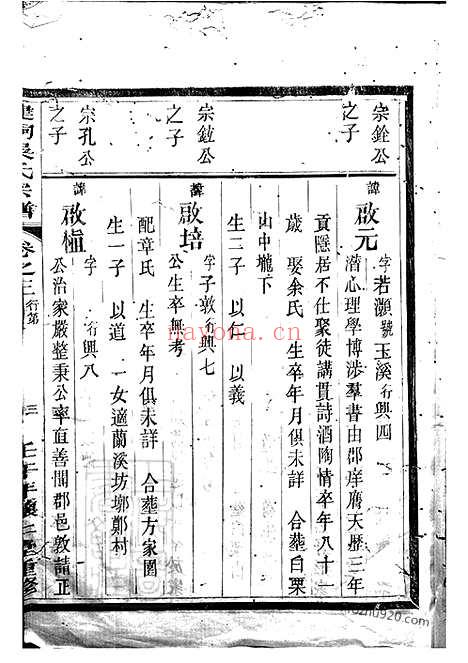 宗銓公
之子
諱
啟元
字若灝號玉溪行興四
潛心理學博涉羣書由郡庠膺天歷三年
貢隱居不仕聚徒講貫詩酒陶情卒年八十一
歲 娶余氏 生卒年月俱未詳 合塟白栗
山中壠下
生二子 以仁 以義
宗鈆公
之子
諱
啟培
字子敦行興七
公生卒無考
配章氏 生卒年月俱未詳 合塟方家園
生一子 以道 一女適蘭溪坊墎鄭村
宗孔公
之子
諱
啟植
字 行興八
公治家嚴整秉公率直善聞郡邑敦請正
吳氏宗譜 卷之三 行第 三 重修
nayona.cn